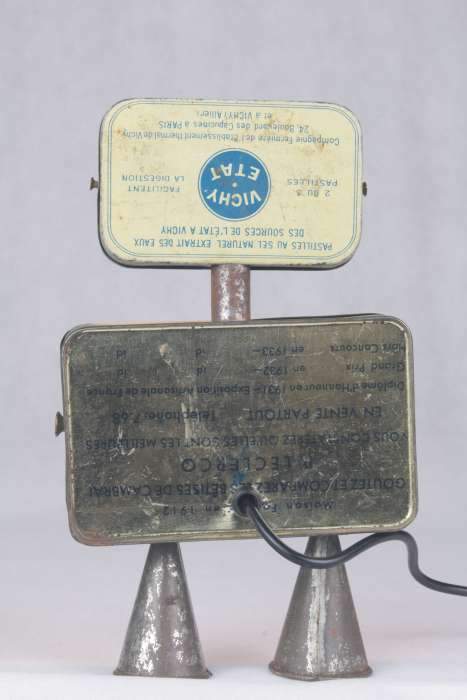 PASTILLES AU SEL NATUREL EXTRAIT DES EAUX
DES SOURCES DE L'ETAT A VICHY
2 OU 3 FACILITENT
PASTILLES LA DIGESTION
VICHY
ETAT
Compagnie Fermière de l'Etablissement thermal de Vichy
24, Boulevard des Capucines à PARIS
et à VICHY (Allier)
Maison en 1912
GOUTEZ ET COMPAREZ BÊTISES DE CAMBRAI
LECLERCQ
VOUS CONSTATEREZ QU'ELLES SONT LES MEILLEURES
EN VENTE PARTOUT Téléphone: 7.68
Diplôme d'Honneur en 1931- Exposition Artisanale de France
Grand Prix en 1932- id id
Hors Concours en 1933- id id